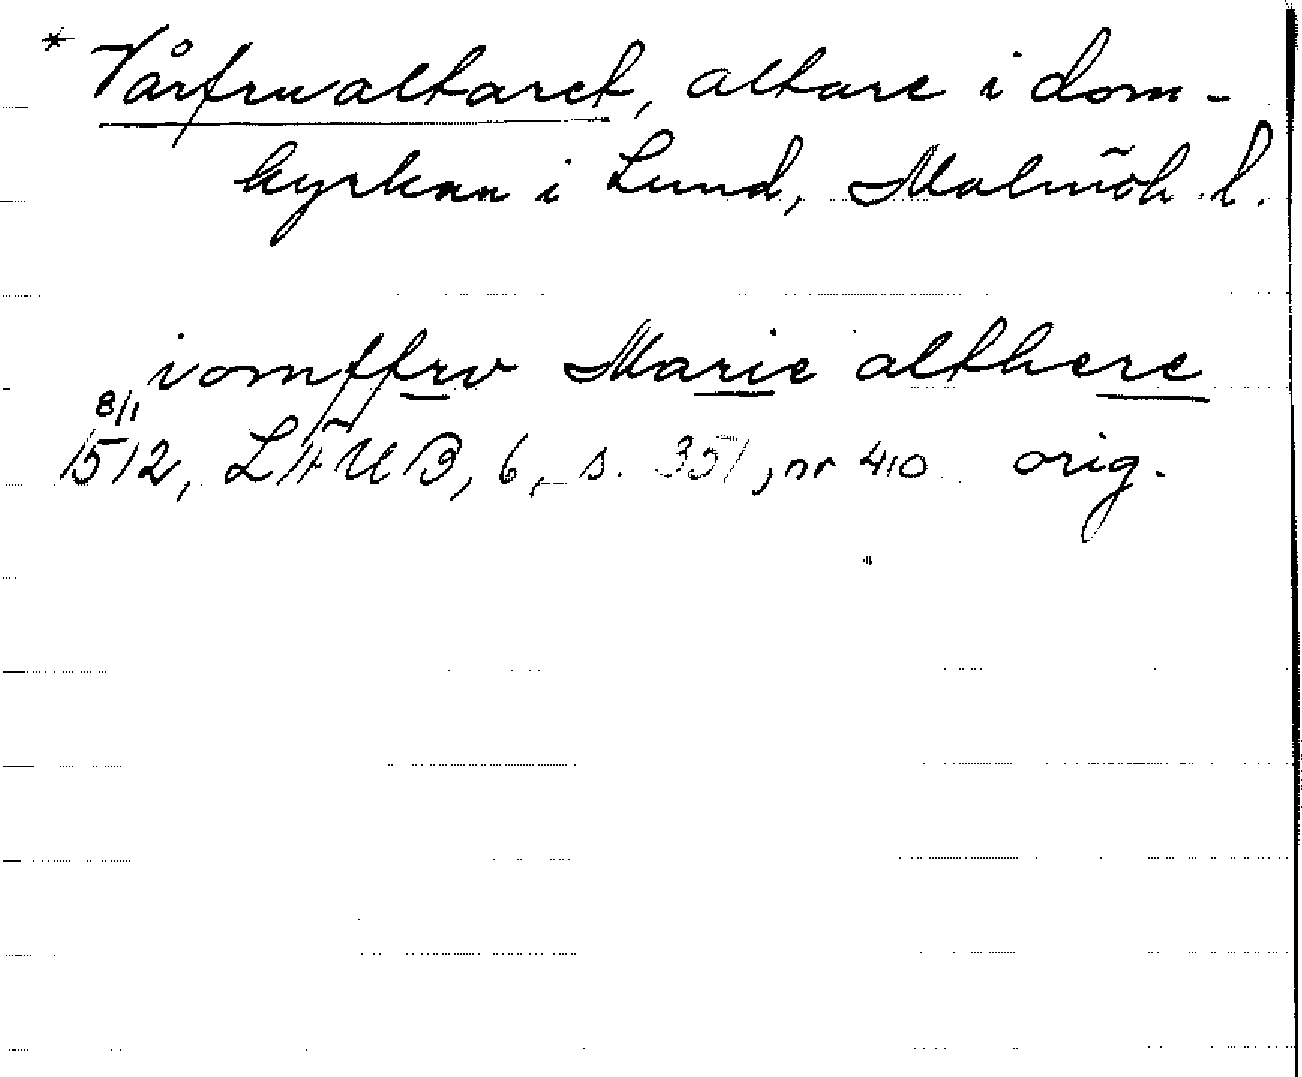 * Vårfrualtaret, altare i dom-
kyrkan i Lund, Malmöh. l.
iomffrv Marie althere
8/1
1512, LÄUB, 6, s. 351, nr 410 orig.